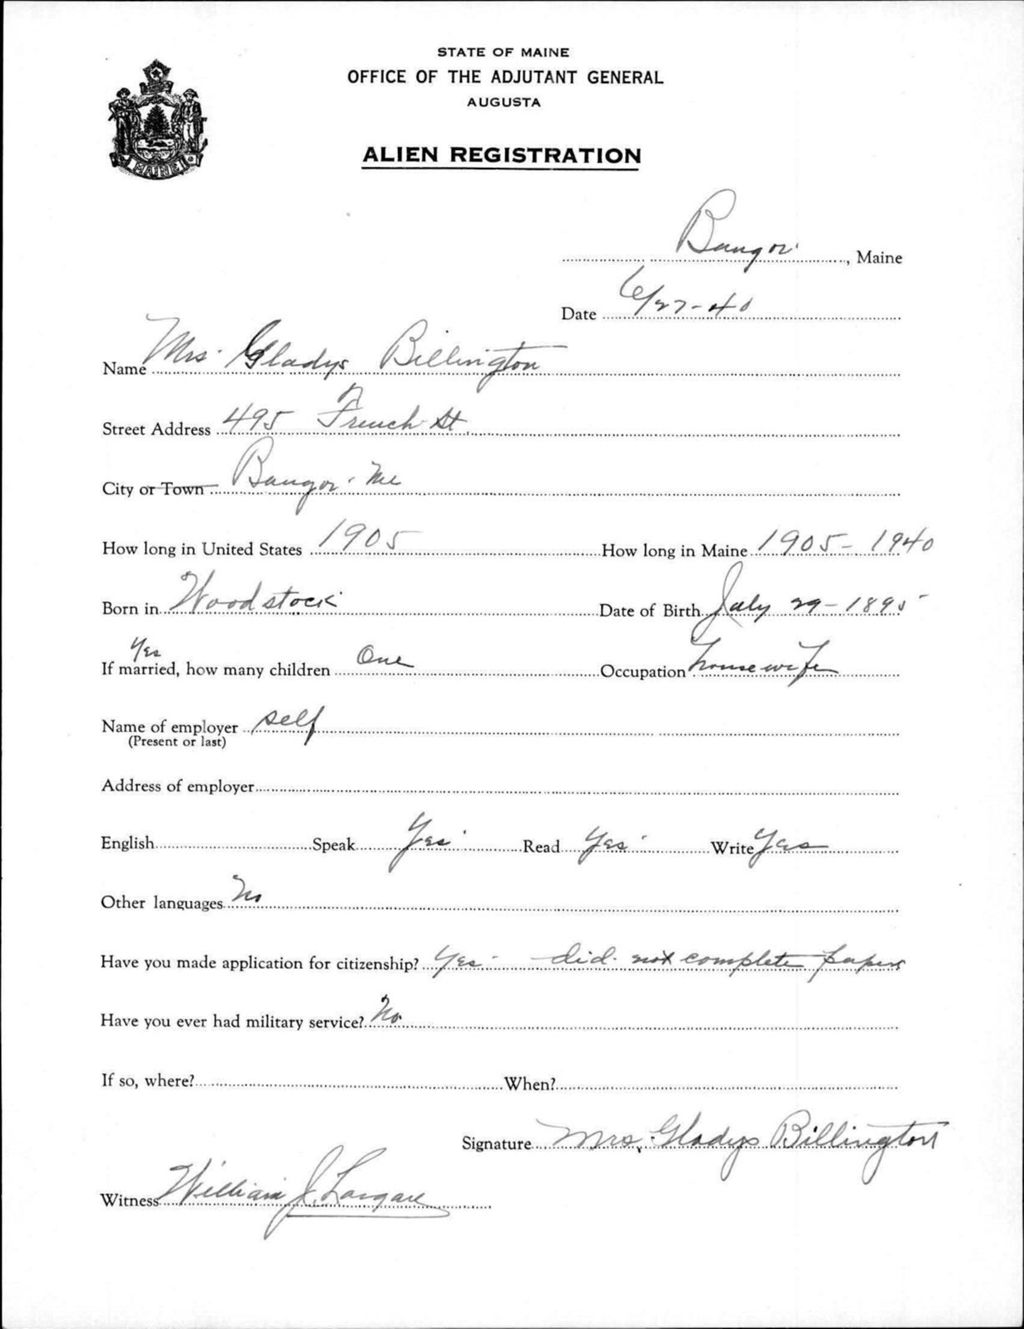 STATE OF MAINE
OFFICE OF THE ADJUTANT GENERAL
AUGUSTA
ALIEN REGISTRATION
MAINE
Bangor, Maine
Date 6/27-40
Name Mrs. Gladys Billington
Street Address 495 French St.
City or Town Bangor. Me
How long in United States 1905 How long in Maine 1905-1940
Born in Woodstock Date of Birth July 29-1895
Yes
If married, how many children One Occupation housewife
Name of employer self
(Present or last)
Address of employer
English Speak Yes Read Yes Write Yes
Other languages No
Have you made application for citizenship? Yes - did not complete papers
Have you ever had military service? No
If so, where? When?
Signature Mrs. Gladys Billington
Witness William J.